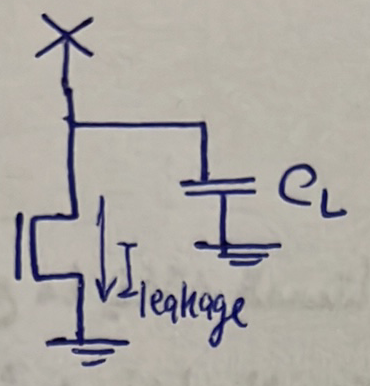 C_L
I_leakage